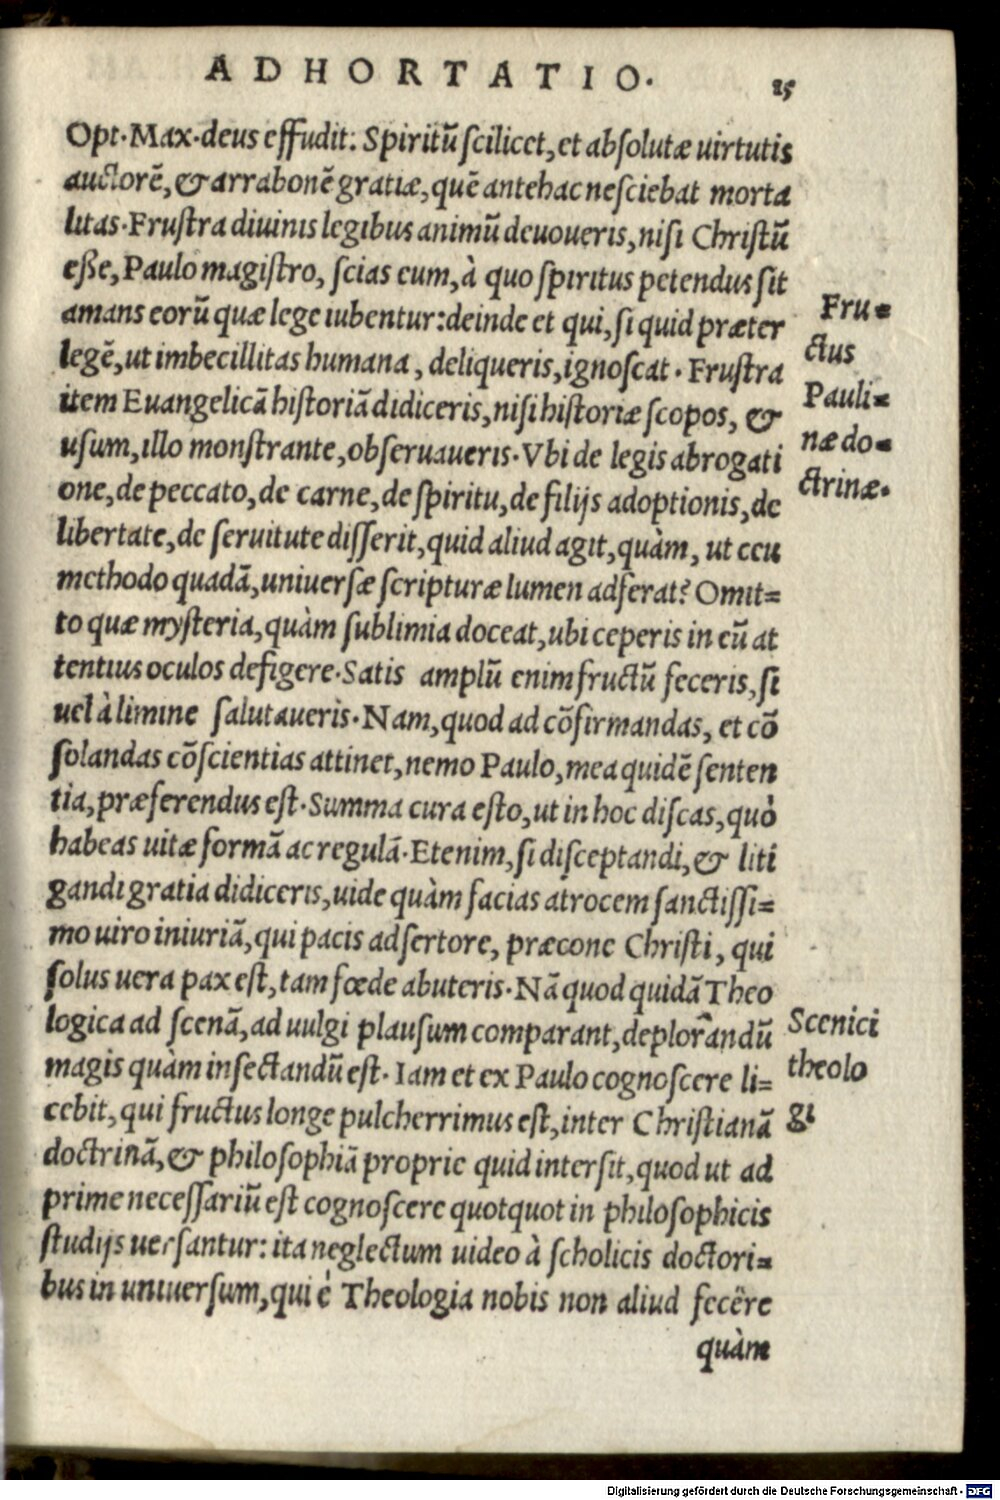 ADHORTATIO.
25
Opt. Max. deus effudit: Spiritũ scilicet, et absolutæ uirtutis
auctorẽ, & arrabonẽ gratiæ, quẽ antehac nesciebat morta
litas. Frustra diuinis legibus animũ deuoueris, nisi Christũ
eße, Paulo magistro, scias eum, à quo spiritus petendus sit
amans eorũ quæ lege iubentur: deinde et qui, si quid præter
legẽ, ut imbecillitas humana, deliqueris, ignoscat. Frustra
item Euangelicã historiã didiceris, nisi historiæ scopos, &
usum, illo monstrante, obseruaueris. Vbi de legis abrogati
one, de peccato, de carne, de spiritu, de filijs adoptionis, de
libertate, de seruitute disserit, quid aliud agit, quàm, ut ceu
methodo quadã, uniuersæ scripturæ lumen adferat? Omit=
to quæ mysteria, quàm sublimia doceat, ubi ceperis in eũ at
tentius oculos defigere. Satis amplũ enim fructũ feceris, si
uel à limine salutaueris. Nam, quod ad cõfirmandas, et cõ
solandas cõscientias attinet, nemo Paulo, mea quidẽ senten
tia, præferendus est. Summa cura esto, ut in hoc discas, quò
habeas uitæ formã ac regulã. Etenim, si disceptandi, & liti
gandi gratia didiceris, uide quàm facias atrocem sanctissi=
mo uiro iniuriã, qui pacis adsertore, præcone Christi, qui
solus uera pax est, tam fœde abuteris. Nã quod quidã Theo
logica ad scenã, ad uulgi plausum comparant, deplorandũ
magis quàm insectandũ est. Iam et ex Paulo cognoscere li=
cebit, qui fructus longe pulcherrimus est, inter Christianã
doctrinã, & philosophiã proprie quid intersit, quod ut ad
prime necessariũ est cognoscere quotquot in philosophicis
studijs uersantur: ita neglectum uideo à scholicis doctori=
bus in uniuersum, qui è Theologia nobis non aliud fecêre
quàm
Fru=
ctus
Pauli=
næ do=
ctrinæ.
Scenici
theolo
gi
Digitalisierung gefördert durch die Deutsche Forschungsgemeinschaft · DFG